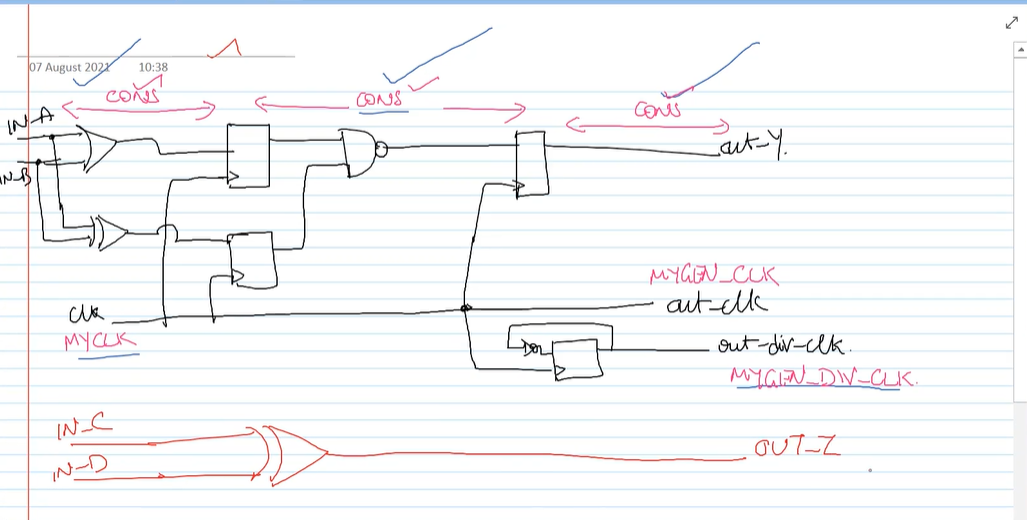 07 August 2021 10:38
CONS CONS CONS
IN-A
out-Y.
IN-B
MYGEN_CLK
clk out-clk
MYCLK
out-div-clk.
MYGEN_DIV_CLK.
IN-C
OUT-Z
IN-D